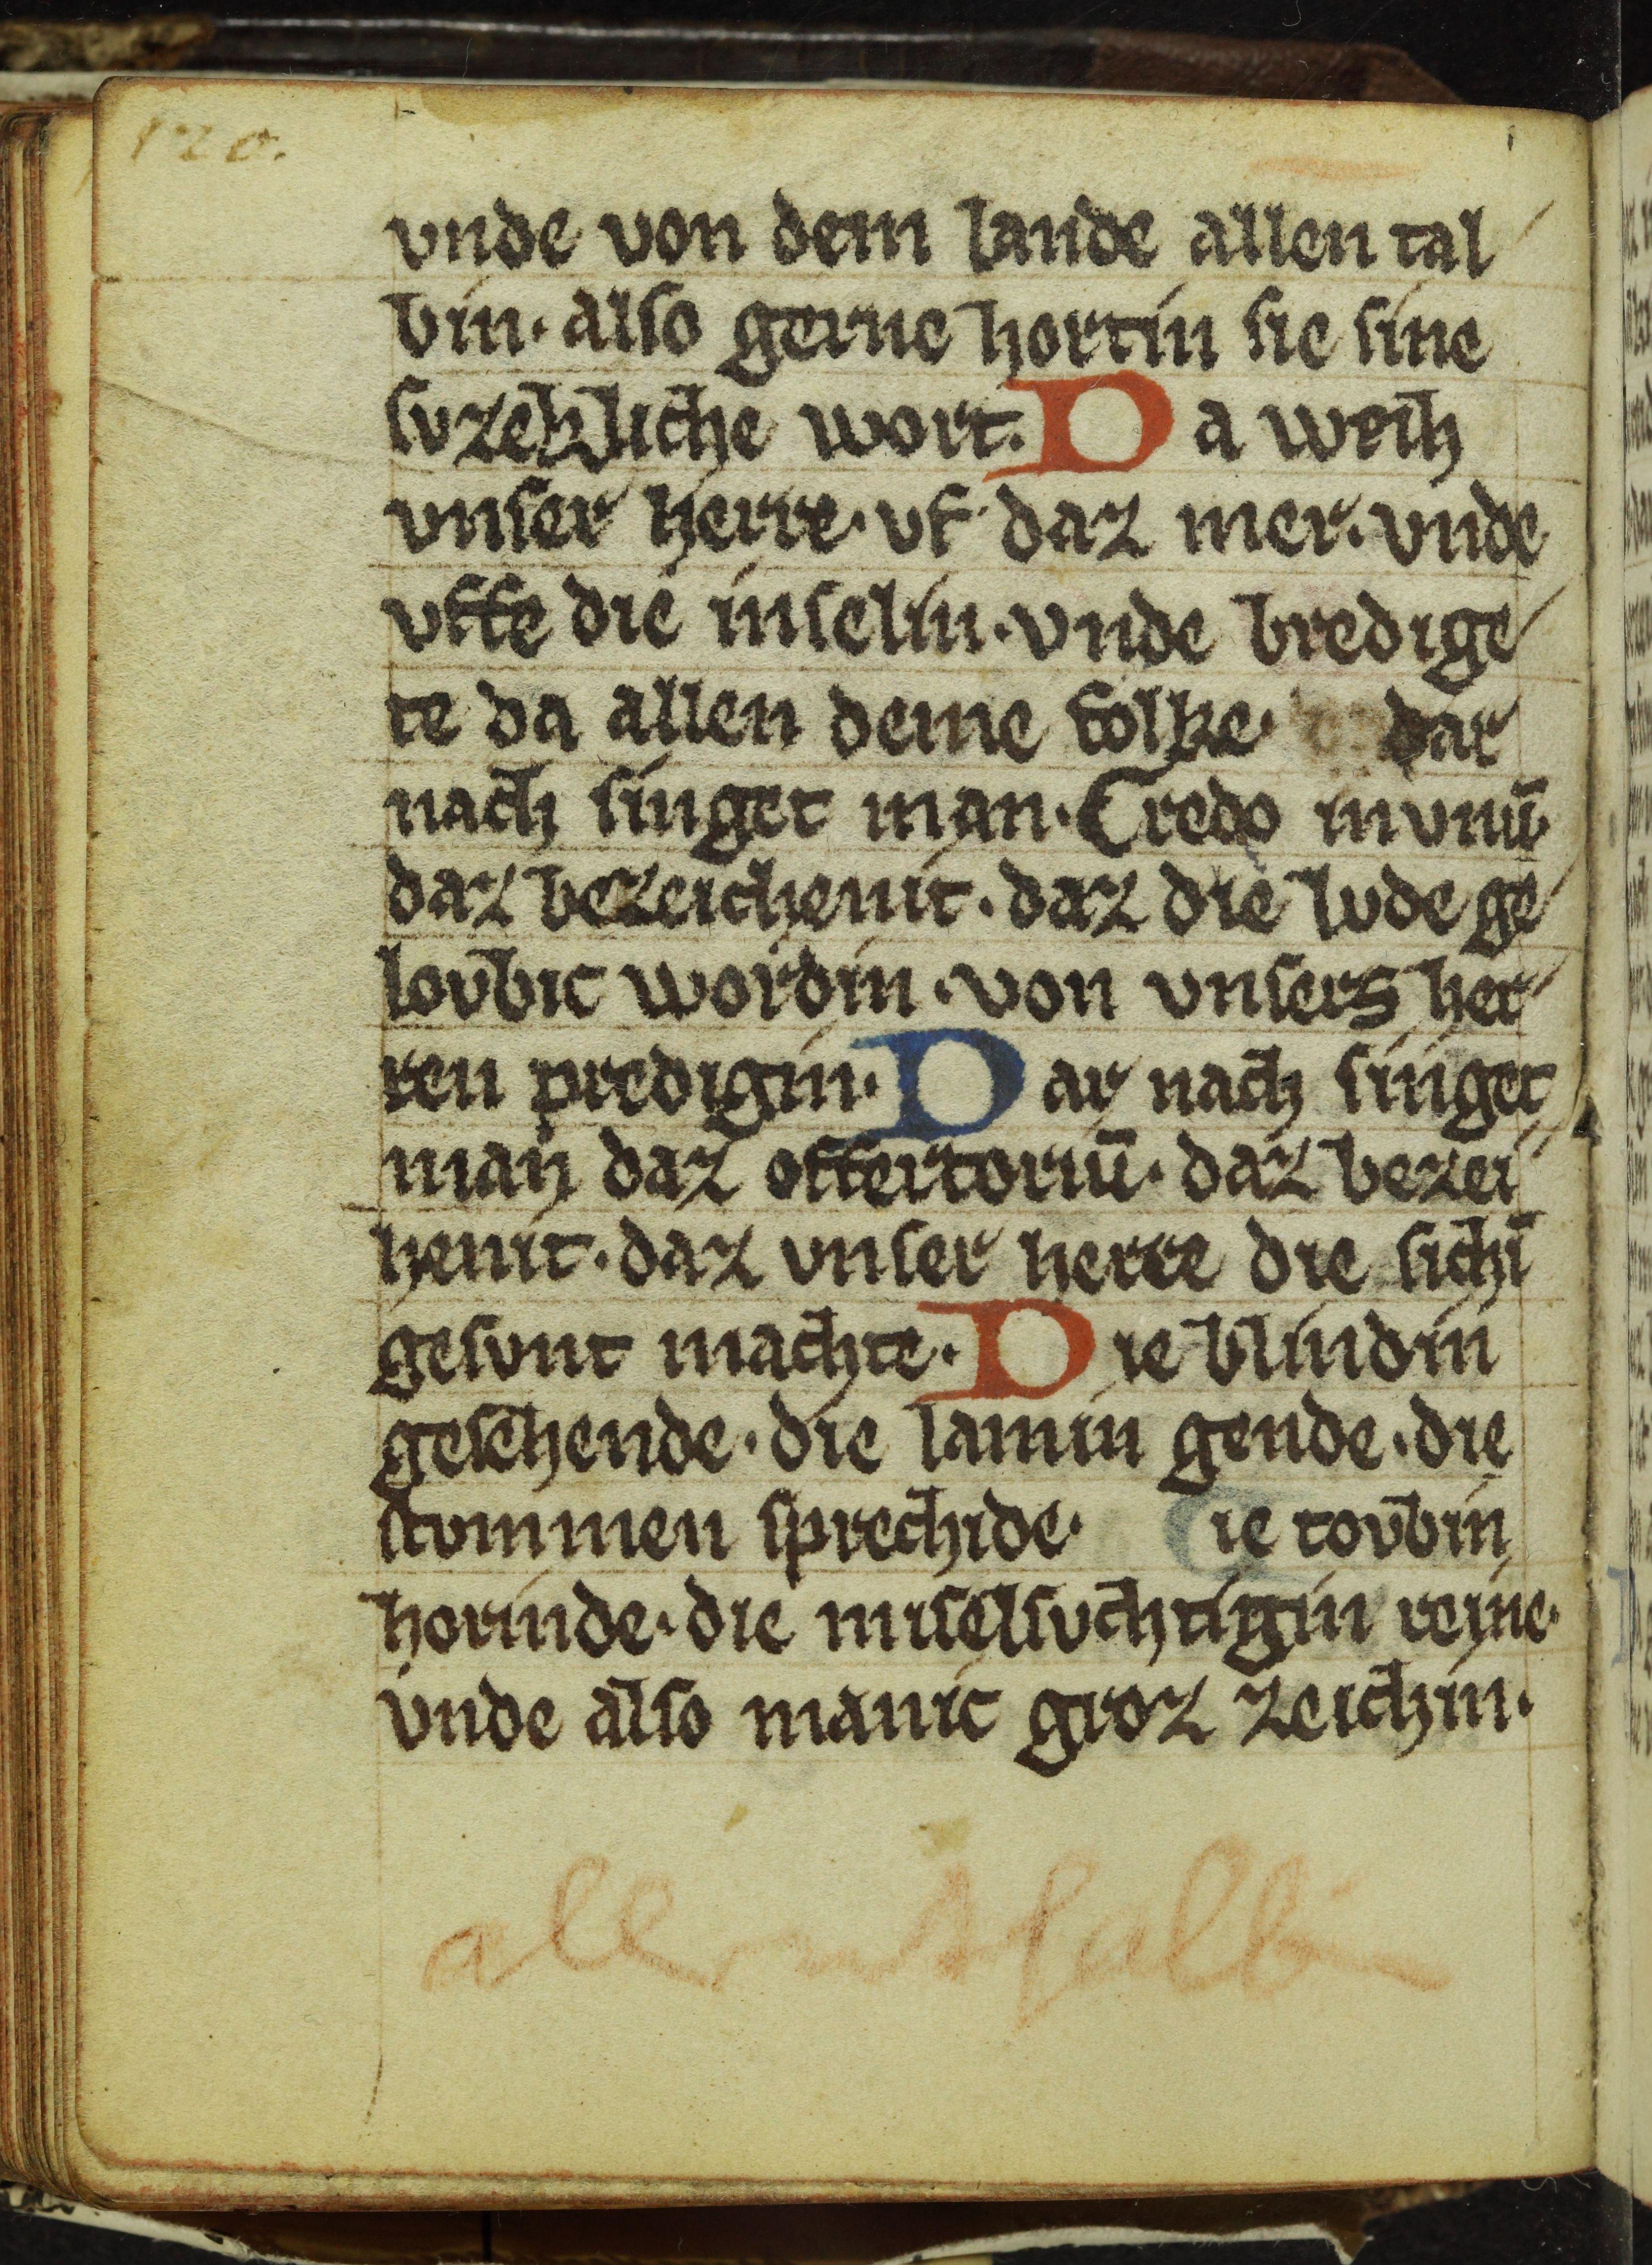 120.
vnde von dem lande allen tal
bin. also gerne hortin sie sine
suzekliche wort. Da weih
vnser herre. vf daz mer. vnde
vffe die inselin. vnde bredige
te da allen deme folke. dar
nach singet man. Credo in vnū.
daz bezeichenit. daz die lude ge
loubic wordin. von vnsers her
ren predigin. Dar nach singet
man daz offertoriū. daz bezei
henit. daz vnser herre die sichī
gesunt machte. Die blindin
gesehende. die lamin gende. die
stummen sprechide. Die toubin
horinde. die miselsuchtigin reine.
vnde also manic groz zeichin.